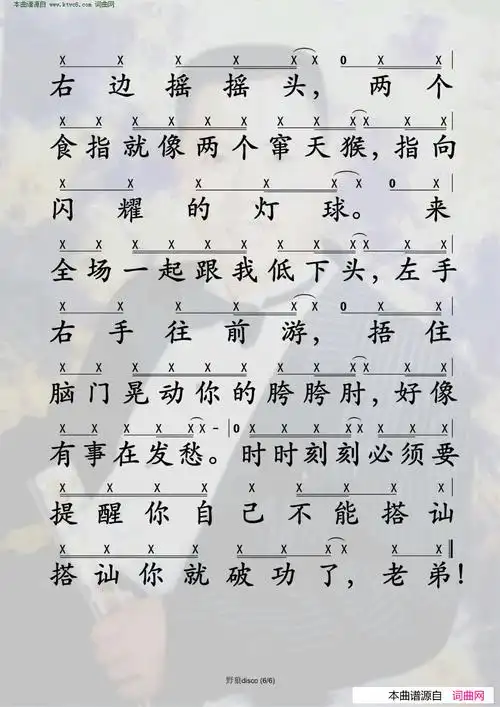 本曲谱源自 www.ktvc8.com 词曲网
X X X X X X 0 X X
右边摇摇头，两个
X X X X X X X X X X X X
食指就像两个窜天猴，指向
X X X X X X 0 X
闪耀的灯球。来
X X X X X X X X X X X X
全场一起跟我低下头，左手
X X X X X X 0 X X
右手往前游，捂住
X X X X X X X X X X X X
脑门晃动你的胯胯肘，好像
X X X X X X - 0 X X X X X X X X
有事在发愁。时时刻刻必须要
X X X X X X X X X
提醒你自己不能搭讪
X X X X X X X X X X
搭讪你就破功了，老弟！
野狼disco (6/6)
本曲谱源自 词曲网